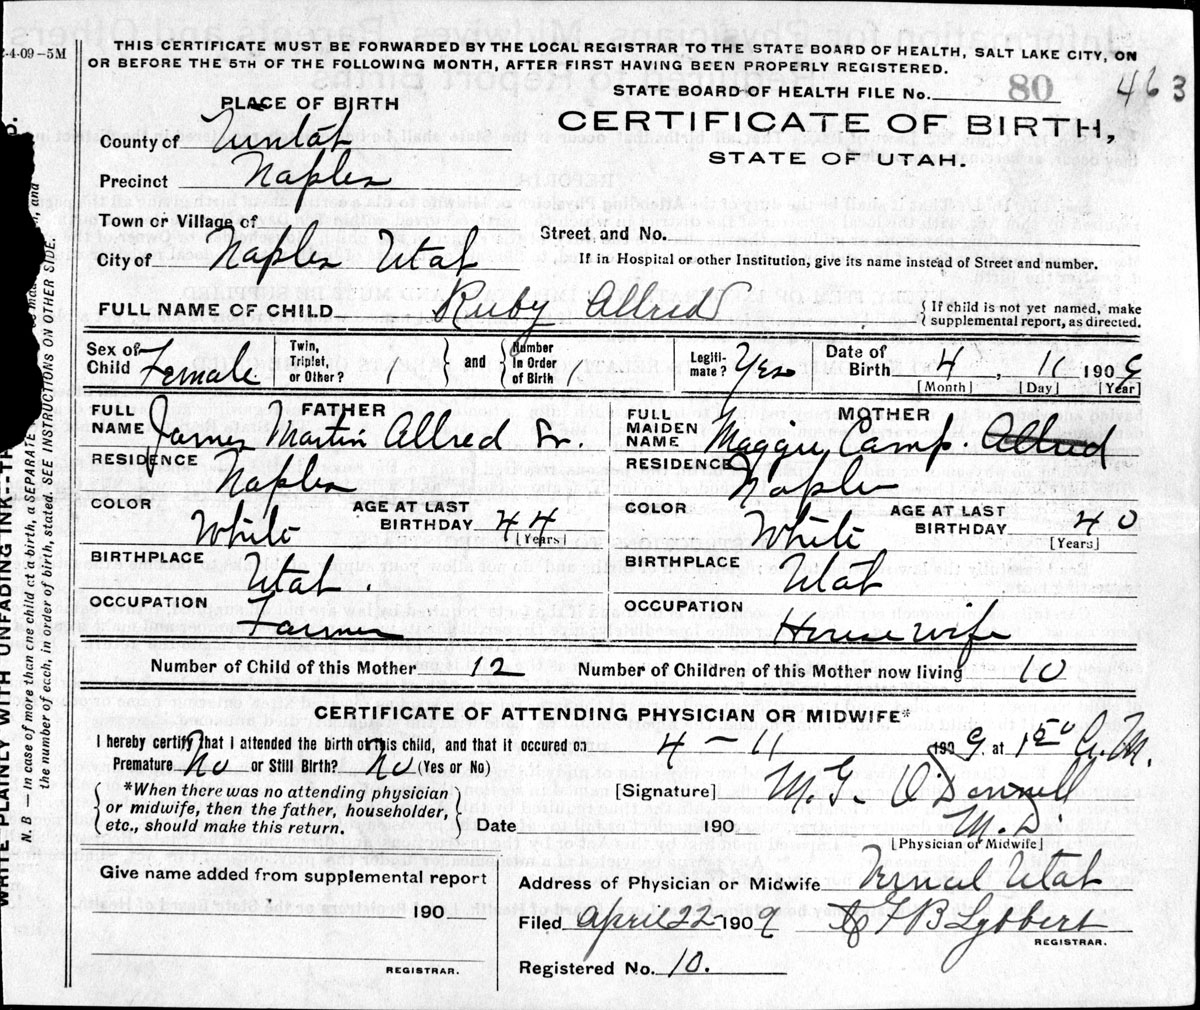 2-4-09-5M
THIS CERTIFICATE MUST BE FORWARDED BY THE LOCAL REGISTRAR TO THE STATE BOARD OF HEALTH, SALT LAKE CITY, ON
OR BEFORE THE 5TH OF THE FOLLOWING MONTH, AFTER FIRST HAVING BEEN PROPERLY REGISTERED.
STATE BOARD OF HEALTH FILE No. 80 463
PLACE OF BIRTH
CERTIFICATE OF BIRTH,
STATE OF UTAH.
County of Uintah
Precinct Naples
Town or Village of
Street and No.
City of Naples Utah
If in Hospital or other Institution, give its name instead of Street and number.
FULL NAME OF CHILD Ruby Allred
{ If child is not yet named, make
supplemental report, as directed.
Sex of Child Female
Twin, Triplet, or Other? } and { Number In Order of Birth
Legiti-mate? Yes
Date of Birth 4, 11 1909
[Month] [Day] [Year]
FATHER
FULL NAME James Martin Allred Sr.
RESIDENCE Naples
COLOR White
AGE AT LAST BIRTHDAY 44
[Years]
BIRTHPLACE Utah.
OCCUPATION Farmer
MOTHER
FULL MAIDEN NAME Maggie Camp. Allred
RESIDENCE Naples
COLOR White
AGE AT LAST BIRTHDAY 40
[Years]
BIRTHPLACE Utah
OCCUPATION House wife
Number of Child of this Mother 12 Number of Children of this Mother now living 10
CERTIFICATE OF ATTENDING PHYSICIAN OR MIDWIFE*
I hereby certify that I attended the birth of this child, and that it occured on 4-11 1909, at 1 50 A.M.
Premature No or Still Birth? No (Yes or No)
{ *When there was no attending physician
or midwife, then the father, householder,
etc., should make this return. }
Date 190
[Signature] M. G. O'Donnell
M.D.
[Physician or Midwife]
Give name added from supplemental report
190
REGISTRAR.
Address of Physician or Midwife Vernal Utah
Filed April 22-1909 F B Lybbert
REGISTRAR.
Registered No. 10.
WRITE PLAINLY WITH UNFADING INK
N. B — In case of more than one child at a birth, a SEPARATE
the number of each, in order of birth, stated. SEE INSTRUCTIONS ON OTHER SIDE.